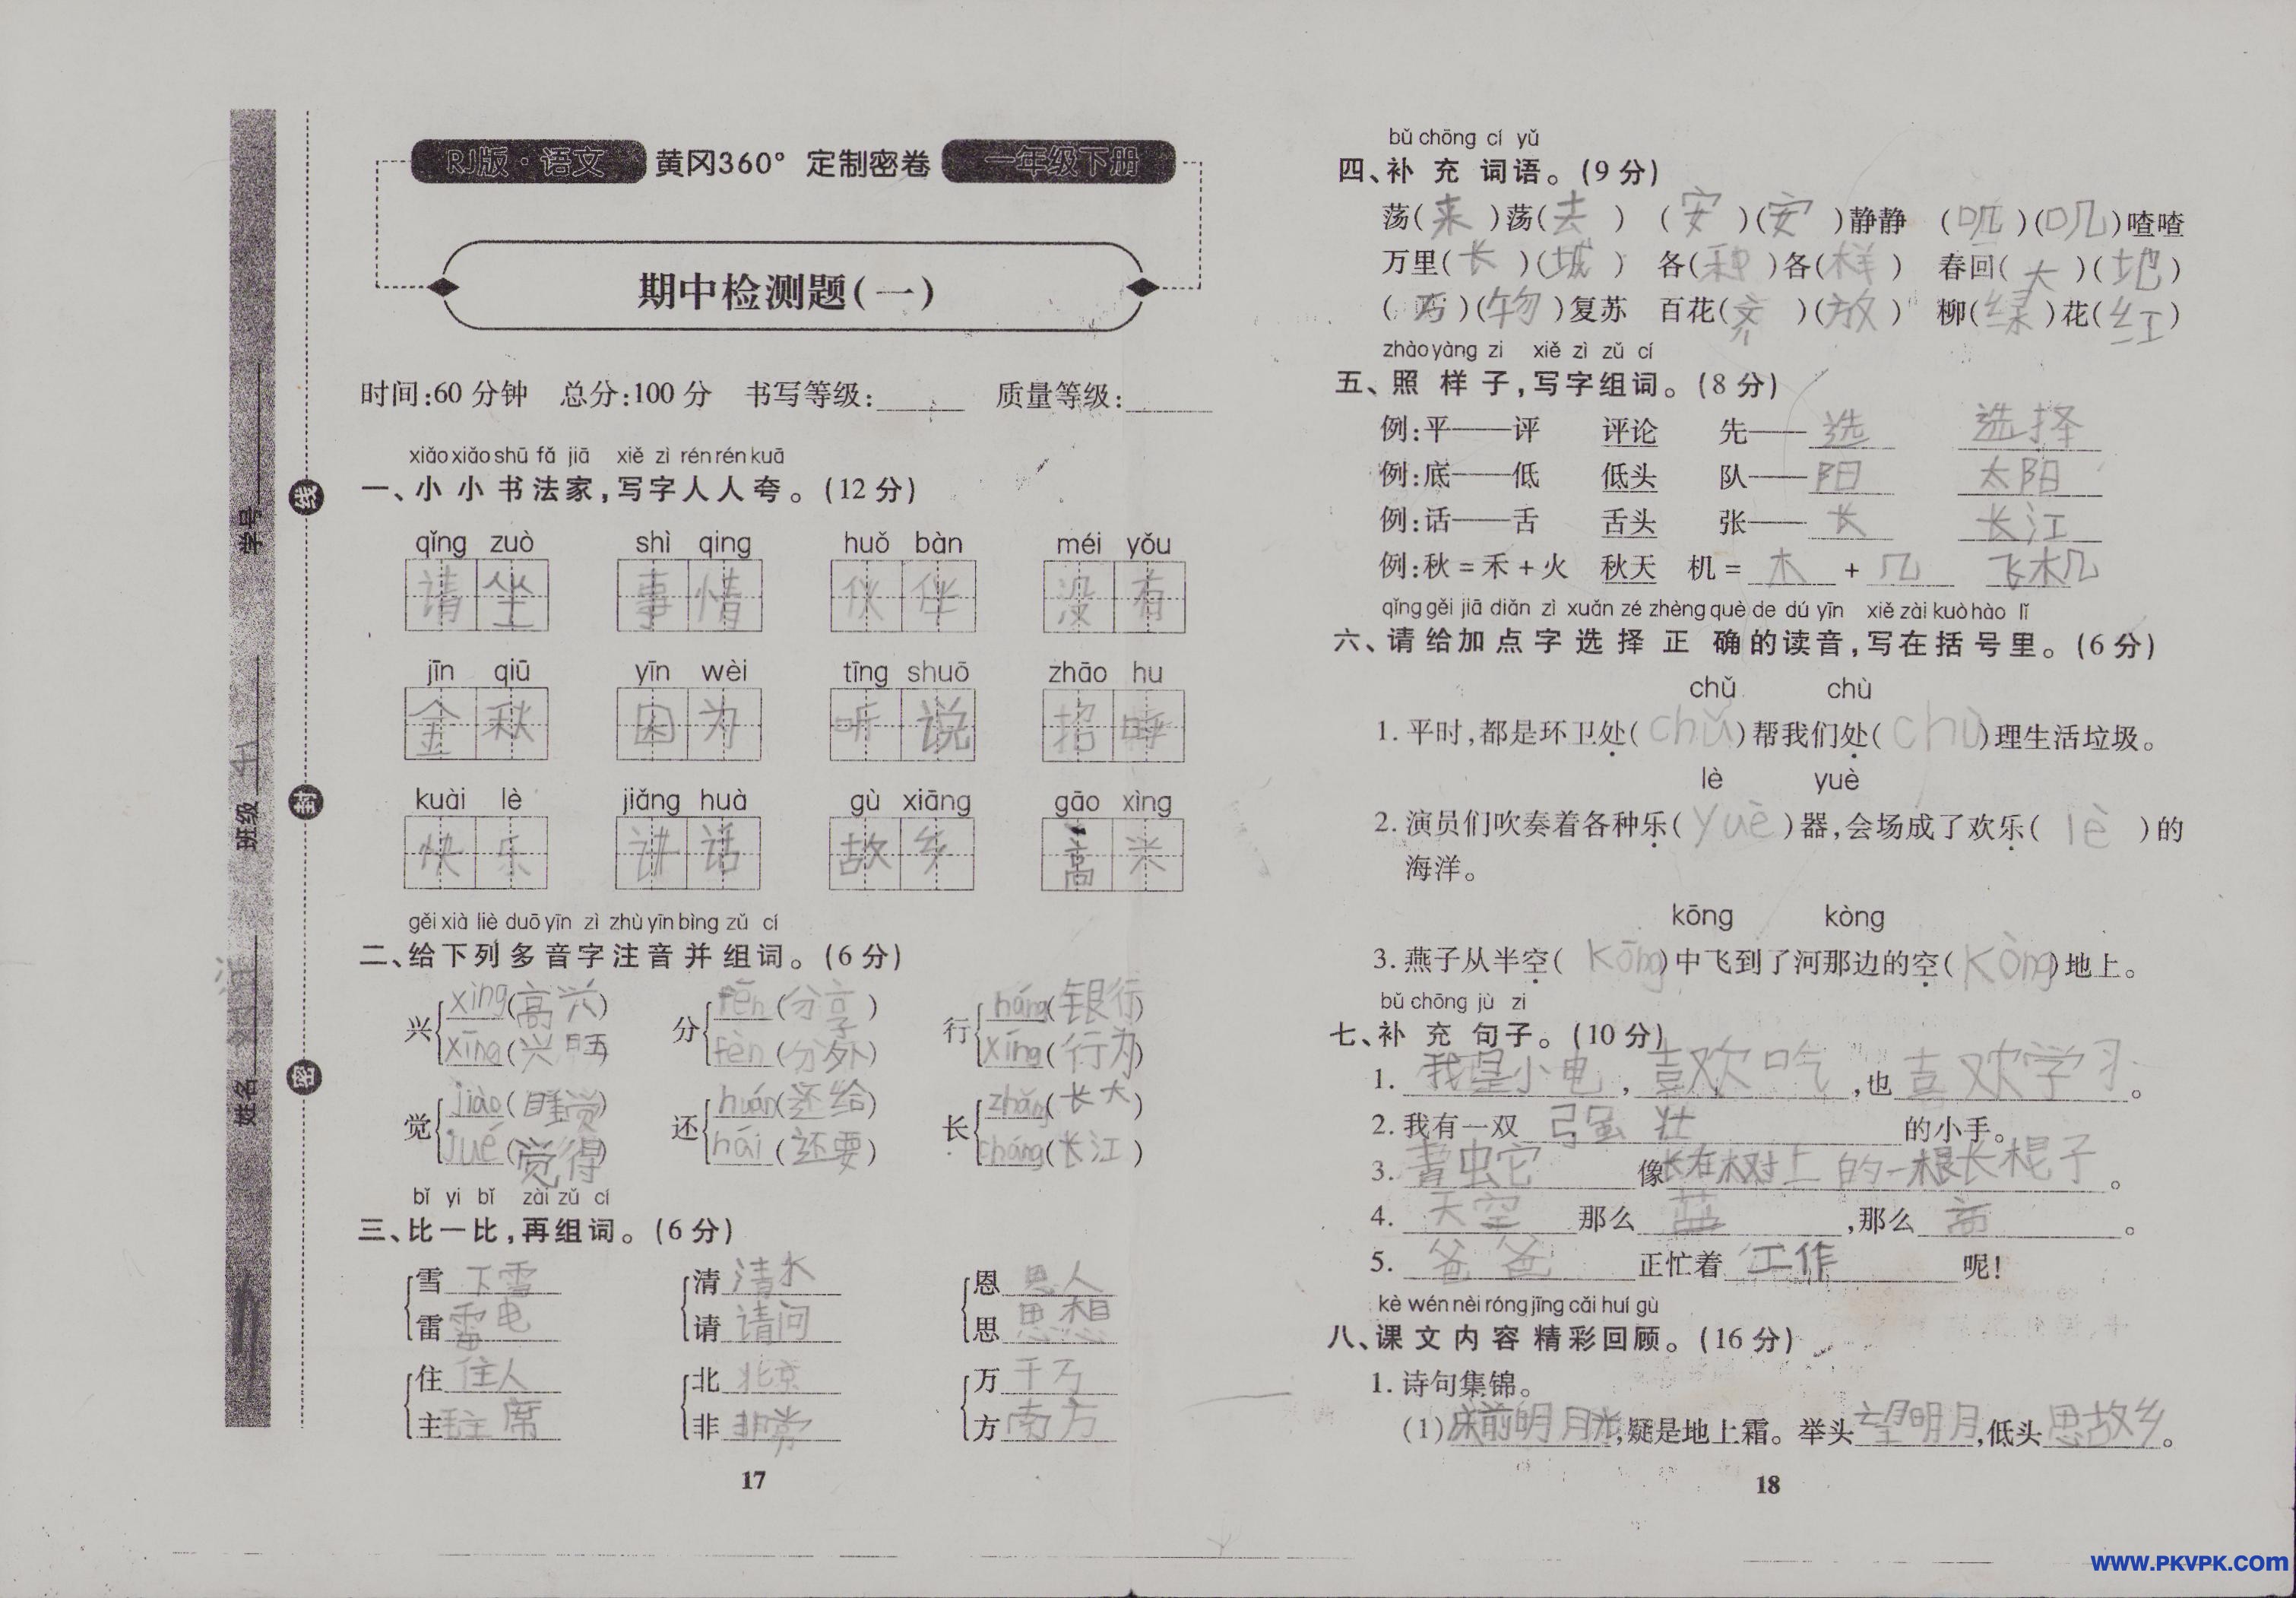 RJ版·语文 黄冈360° 定制密卷 一年级下册
期中检测题(一)
时间:60分钟 总分:100分 书写等级:______ 质量等级:______
学号
班级
姓名
线
封
密
xiǎo xiǎo shū fǎ jiā xiě zì rén rén kuā
一、小小书法家,写字人人夸。(12分)
qǐng zuò shì qing huǒ bàn méi yǒu
请坐 事情 伙伴 没有
jīn qiū yīn wèi tīng shuō zhāo hu
金秋 因为 听说 招呼
kuài lè jiǎng huà gù xiāng gāo xìng
快乐 讲话 故乡 高兴
gěi xià liè duō yīn zì zhù yīn bìng zǔ cí
二、给下列多音字注音并组词。(6分)
xìng(高兴) fēn(分享) háng(银行)
兴 分 行
xīng(兴旺) fèn(分外) xíng(行为)
jiào(睡觉) huán(还给) zhǎng(长大)
觉 还 长
jué(觉得) hái(还要) cháng(长江)
bǐ yi bǐ zài zǔ cí
三、比一比,再组词。(6分)
雪 下雪 清 清水 恩 恩人
雷 雷电 请 请问 思 思想
住 住人 北 北京 万 千万
主 主席 非 非常 方 南方
17
bǔ chōng cí yǔ
四、补充词语。(9分)
荡(来)荡(去) (安)(安)静静 (叽)(叽)喳喳
万里(长)(城) 各(种)各(样) 春回(大)(地)
(万)(物)复苏 百花(齐)(放) 柳(绿)花(红)
zhào yàng zi xiě zì zǔ cí
五、照样子,写字组词。(8分)
例:平——评 评论 先——选 选择
例:底——低 低头 队——阳 太阳
例:话——舌 舌头 张——长 长江
例:秋=禾+火 秋天 机=木+几 飞机
qǐng gěi jiā diǎn zì xuǎn zé zhèng què de dú yīn xiě zài kuò hào lǐ
六、请给加点字选择正确的读音,写在括号里。(6分)
chǔ chù
1. 平时,都是环卫处(chǔ)帮我们处(chù)理生活垃圾。
lè yuè
2. 演员们吹奏着各种乐(yuè)器,会场成了欢乐(lè)的
海洋。
kōng kòng
3. 燕子从半空(kōng)中飞到了河那边的空(kòng)地上。
bǔ chōng jù zi
七、补充句子。(10分)
1. 我是小电,喜欢吃,也喜欢学习。
2. 我有一双强壮的小手。
3. 青虫它像长在树上的一根长棍子。
4. 天空那么蓝,那么高。
5. 爸爸正忙着工作呢!
kè wén nèi róng jīng cǎi huí gù
八、课文内容精彩回顾。(16分)
1. 诗句集锦。
(1)床前明月光,疑是地上霜。举头望明月,低头思故乡。
18
www.PKVPK.com